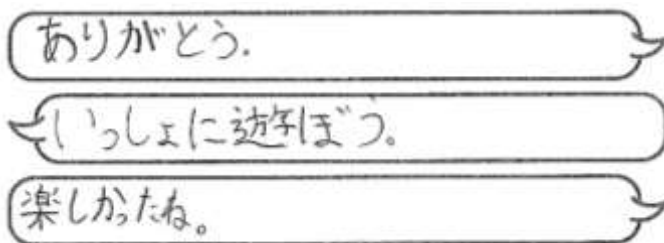 ありがとう.
いっしょに遊ぼう。
楽しかったね。